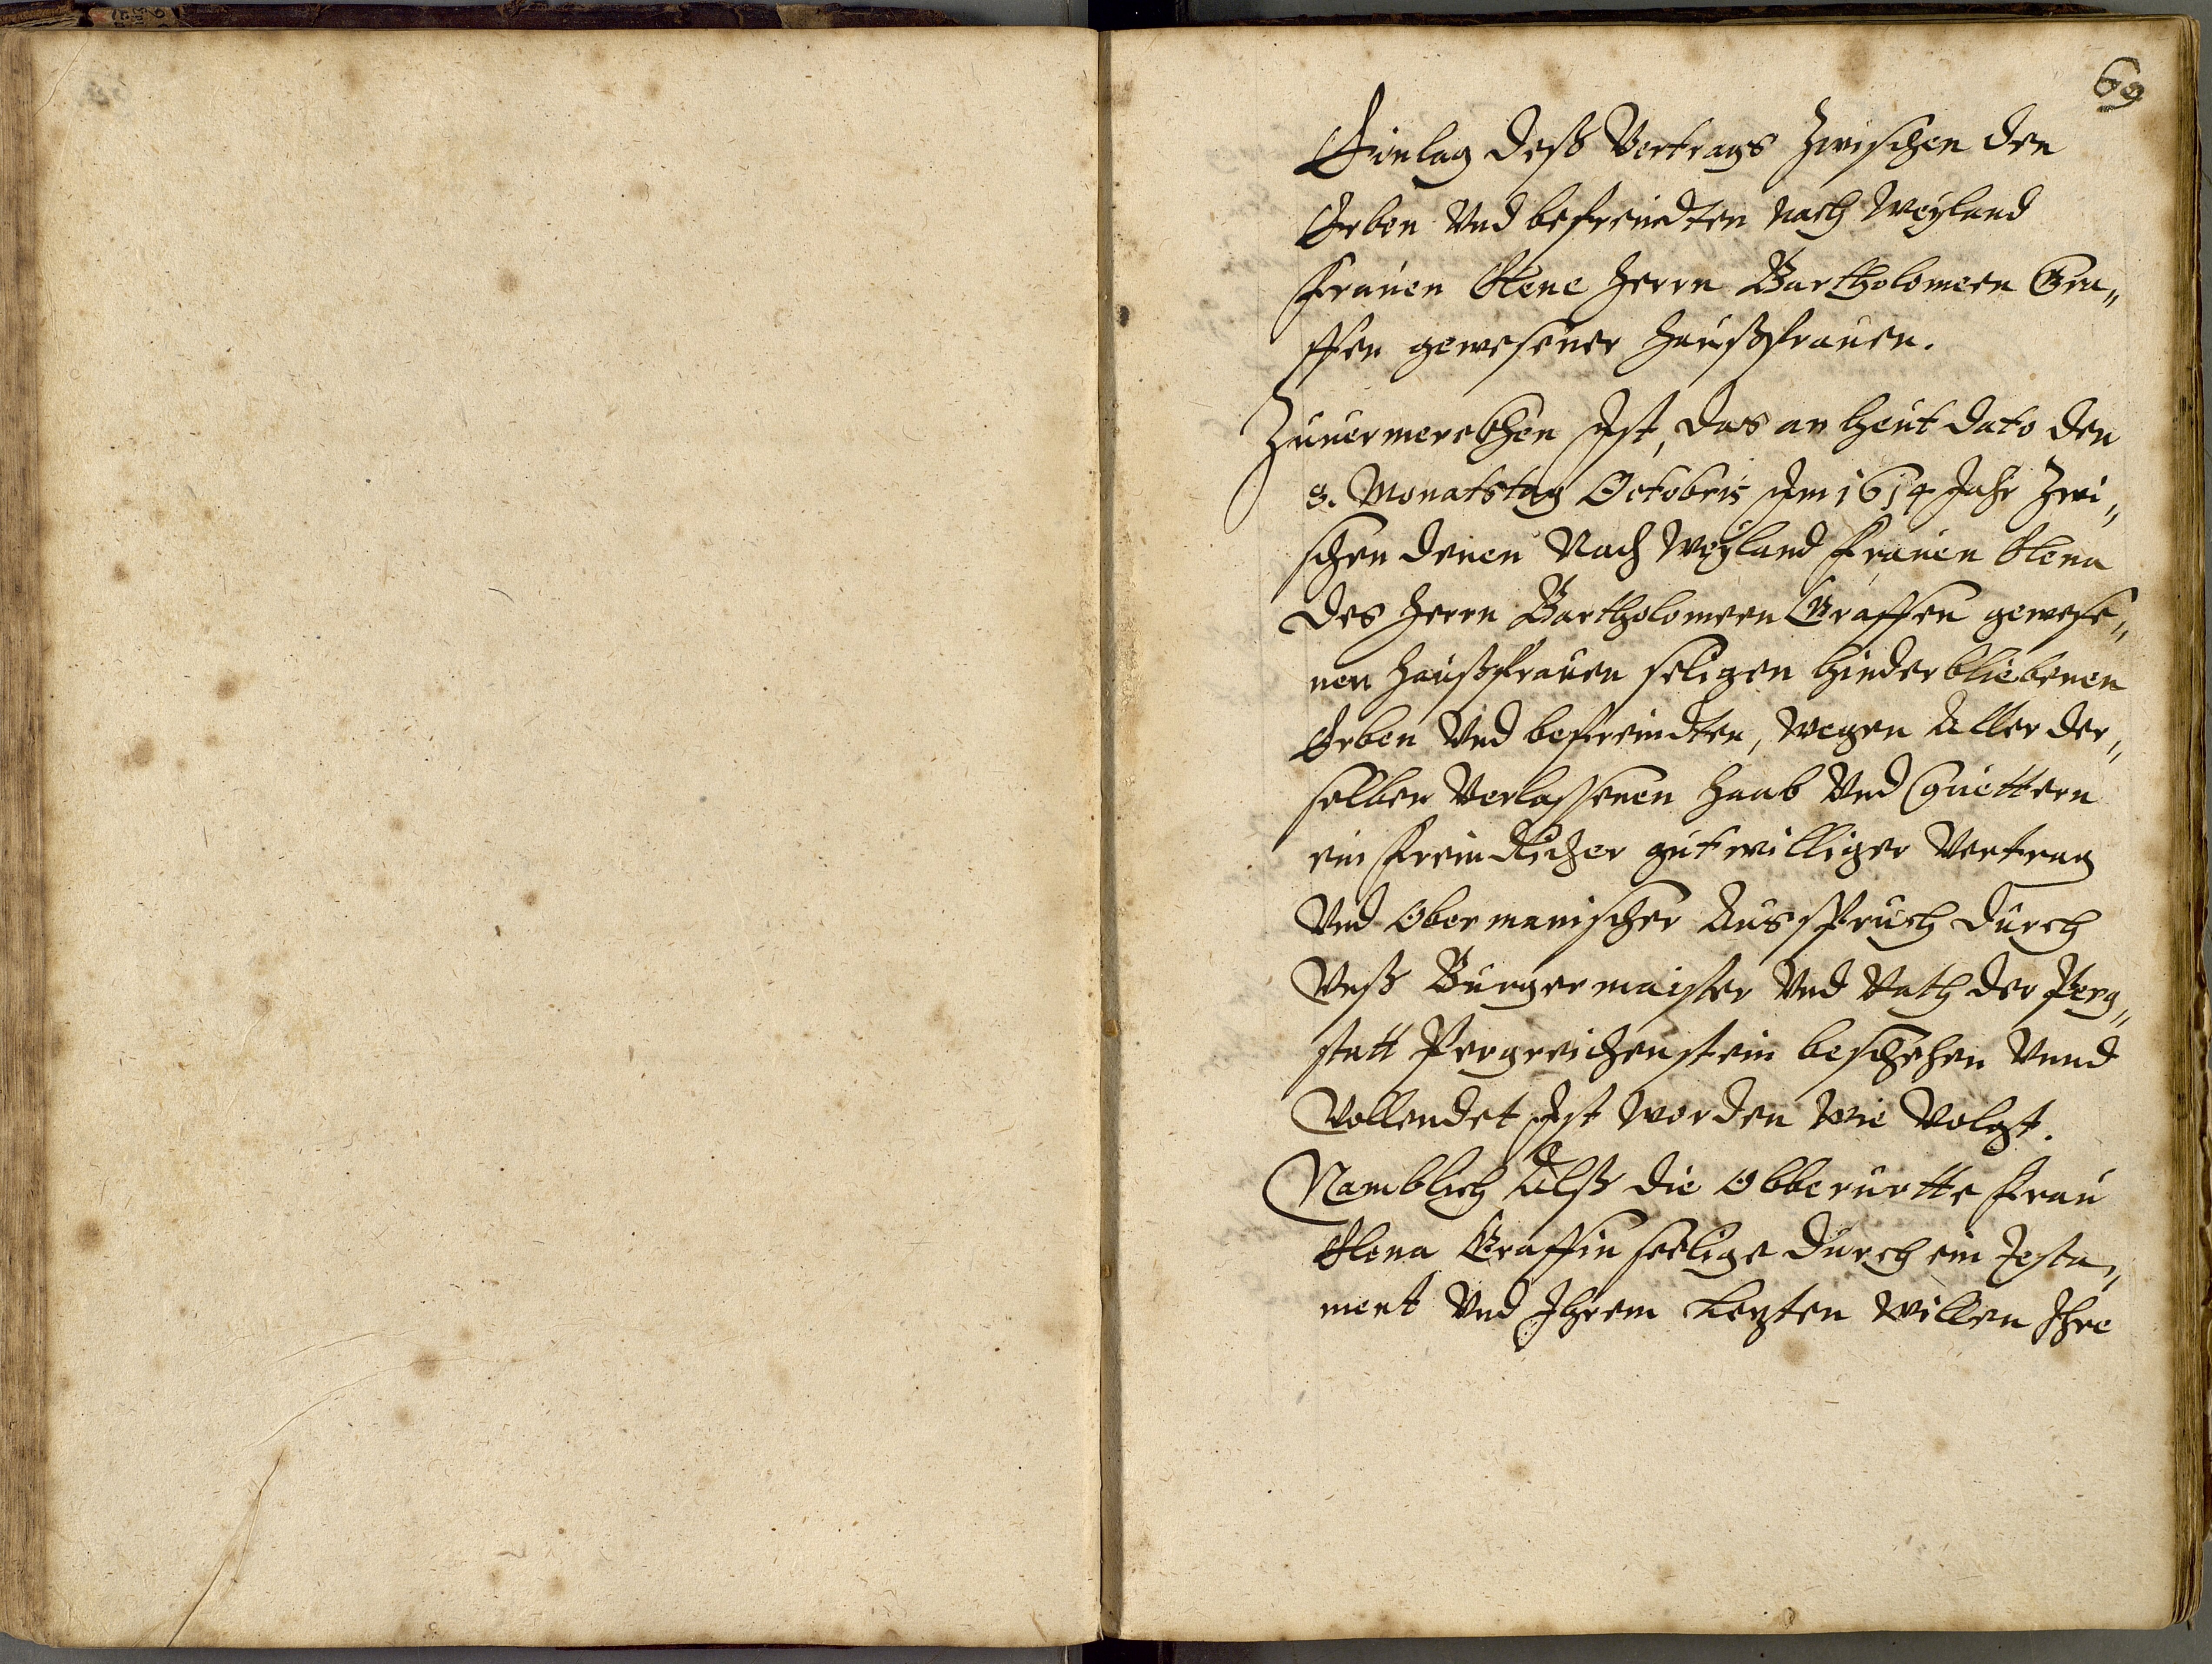 69
Einlag deß Vertrags Zwischen den
Erben Vnd befreindten nach Weyland
Frauen Elene Herrn Bartholomeen Gra„
ffen gewesener Haußfrauen.
Zuuermerckhen Ist, das an heut dato den
8. Monatstag Octobris Im 1614 Jahr Zwi„
schen denen Nach Weyland Frauen Elena
des Herrn Bartholomeen Graffen gewese„
nen Haußfrauen seligen hinderbliebenen
Erben Vnd befreindten, wegen Aller der„
selben Verlassenen Haab Vnd Guettern
ein Freindlicher gutwilliger Vertrag
Vnd Obermanischer Ausspruch durch
Vnß Burgermaister Vnd Rath der Perg„
statt Pergreichenstein beschehen Vnnd
Vollendet Ist worden wie Volgt.
Namblich Alß die Obberurtte Frau
Elena Graffin seelige durch ein Testa„
ment Vnd Ihrem Letzten willen Ihre